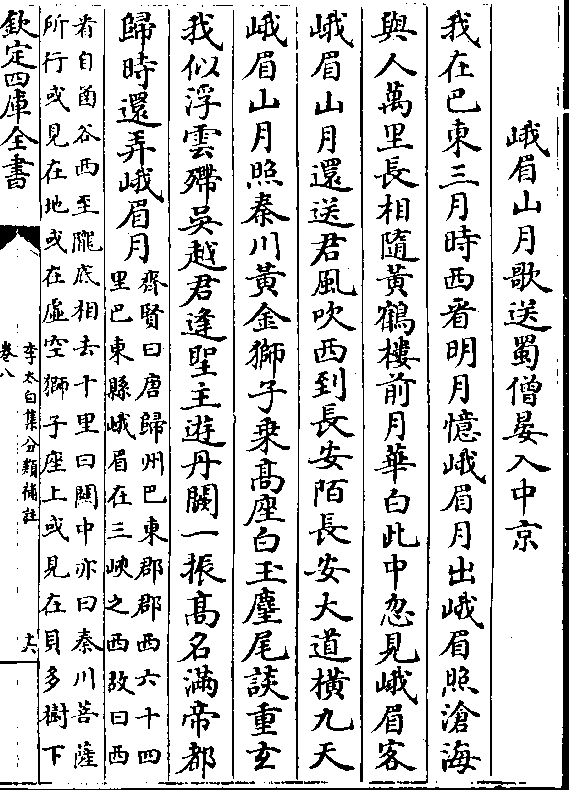 峨眉山月歌送蜀僧晏入中京
我在巴東三月時西看明月憶峨眉月出峨眉照滄海
與人萬里長相隨黃鶴樓前月華白此中忽見峨眉客
峨眉山月還送君風吹西到長安陌長安大道橫九天
峨眉山月照秦川黃金獅子乗髙座白玉麈尾談重玄
我似浮雲殢吳越君逢聖主遊丹闕一振髙名滿帝都
歸時還弄峨眉月
齊賢曰唐歸州巴東郡郡西六十四
里巴東縣峨眉在三峽之西故曰西
看自函谷西至隴底相去十里曰關中亦曰秦川菩薩
所行或見在地或在虛空獅子座上或見在貝多樹下
欽定四庫全書
李太白集分類補註
卷八
十六